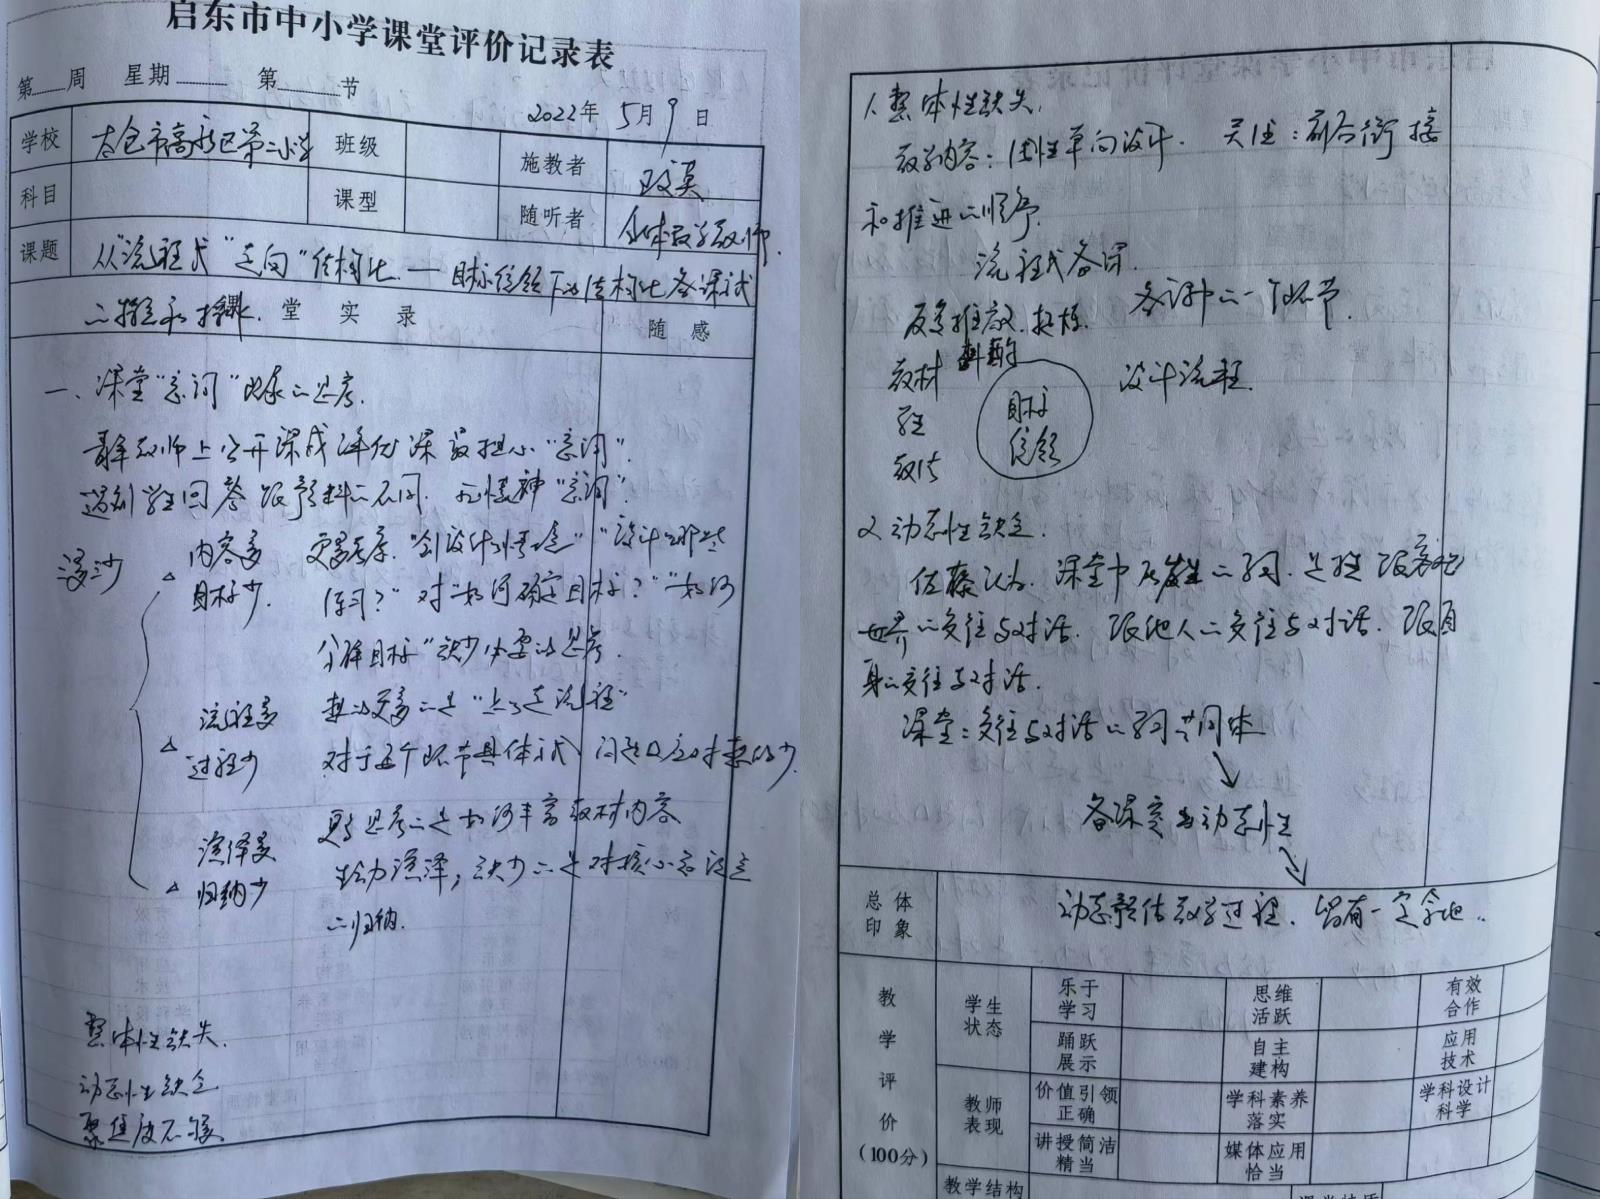 启东市中小学课堂评价记录表
第 周 星期 第 节
2022年 5月9日
学校 太仓市高新区第二小学 班级 施教者
科目 课型 随听者 全体数学教师
课题 从“流程式”走向“结构化”——目标统领下的结构化备课试
堂 实 录 随 感
一、课堂“意词”的思考
青年教师上公开课或评优课最担心“意词”.
遇到学生回答跟预料的不同.
内容多 更多考虑.“创设什么情境”“设计哪些
目标少. 练习?”对“如何确定目标?”“如何
分解目标”缺少必要的思考.
流程多 想的更多的是“上了走流程”
过程少 对于每个环节具体方式、问题反应对想的少.
更多思考的是如何丰富教材内容
演绎多 生动演绎,缺少的是对核心
归纳少
的归纳.
整体性缺失.
动态性缺乏
聚焦度不够
1、整体性缺失.
教学内容:线性单向设计. 关注:前后衔接
和推进的顺序.
流程式备课.
反复推敲. 备课中的一个环节.
教材 斟酌 设计流程.
学生 目标
教法 统领
2、动态性缺乏.
佐藤认为.课堂中所发生的学习.是跟客观
世界的交往与对话.跟他人的交往与对话.跟自
身的交往与对话.
课堂:交往与对话的学习共同体
备课要为动态性
总体 动态预估教学过程.留有一定余地..
印象
教学评价(100分)
学生状态 乐于学习 思维活跃 有效合作
踊跃展示 自主建构 应用技术
教师表现 价值引领正确 学科素养落实 学科设计科学
讲授简洁精当 媒体应用恰当
教学结构